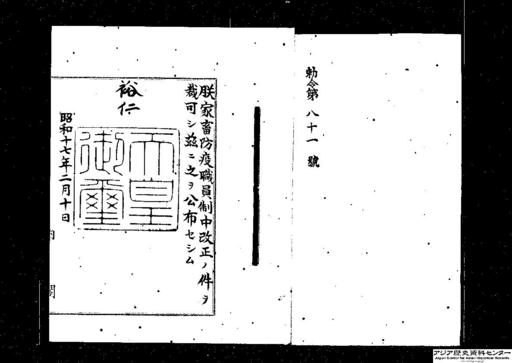 勅令第八十一號
朕家畜防疫職員制中改正ノ件ヲ
裁可シ茲ニ之ヲ公布セシム
裕仁
天皇御璽
昭和十七年二月十日
内
閣
アジア歴史資料センター
Japan Center for Asian Historical Records